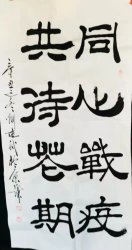 同心戰疫
共待花期
辛丑